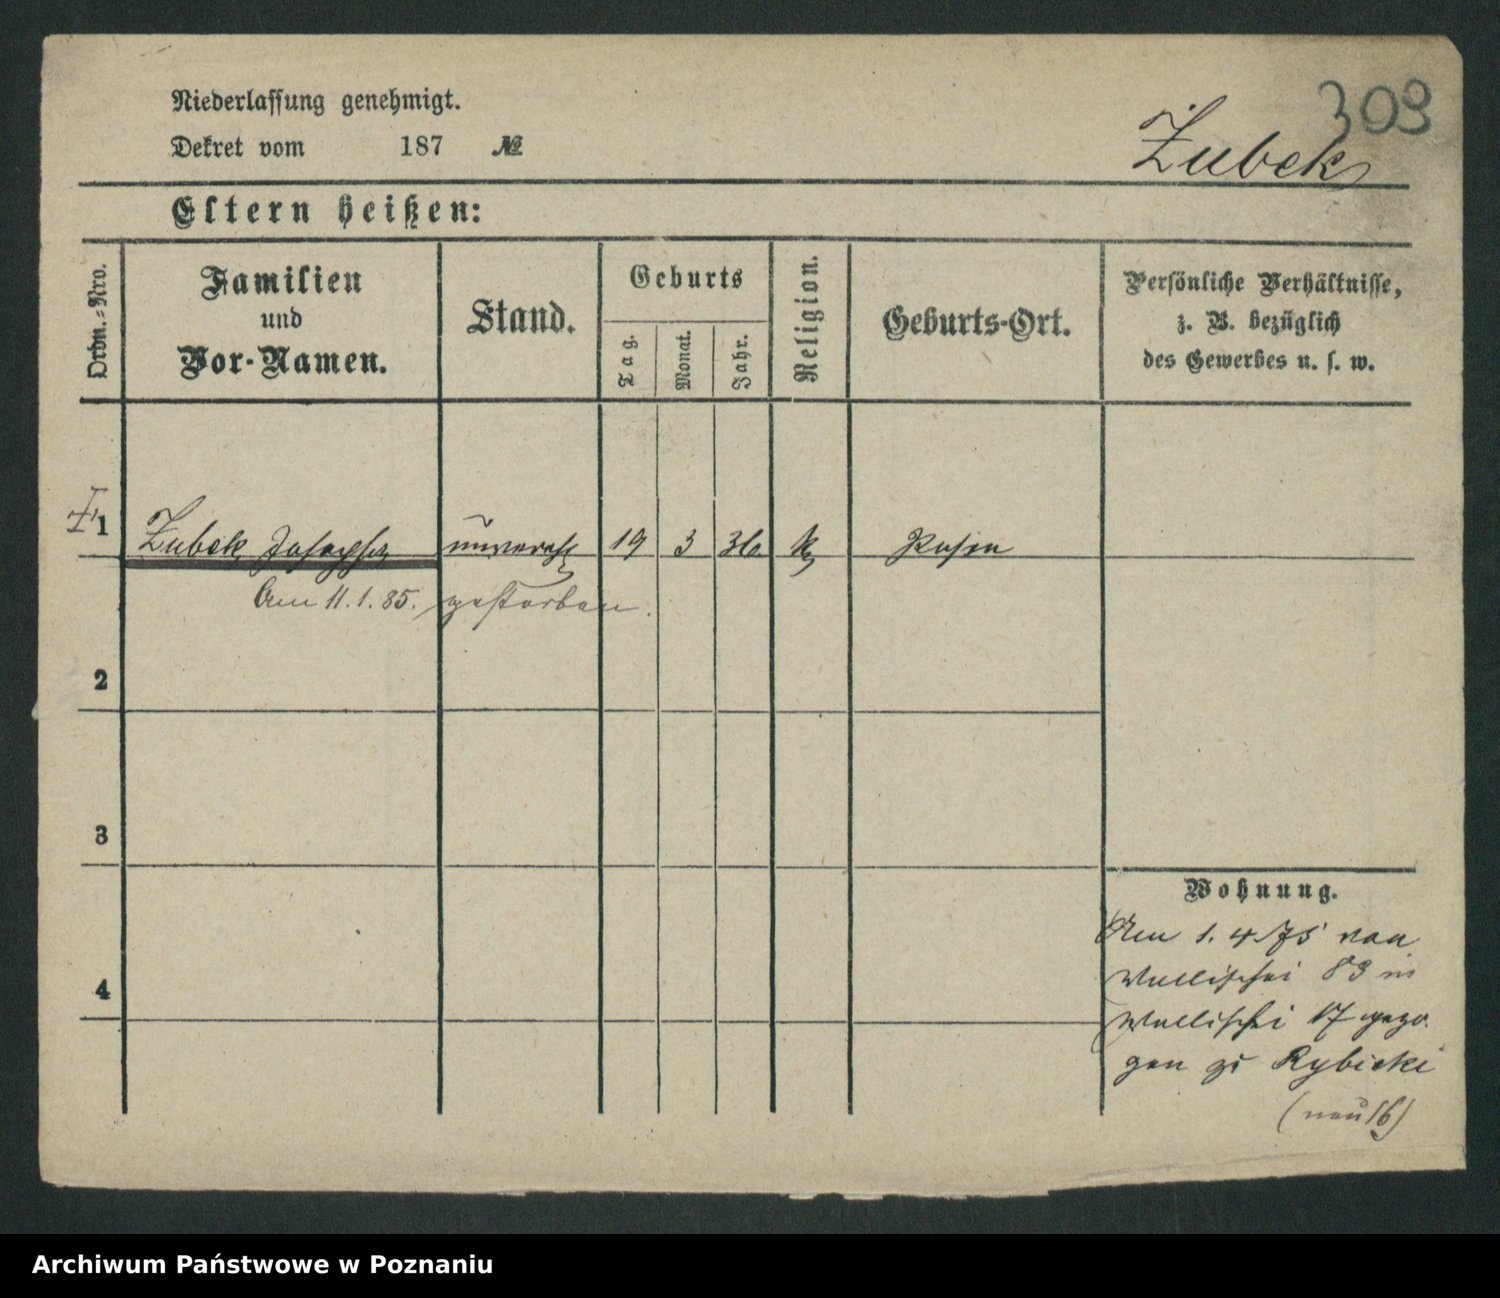 309
Niederlassung genehmigt.
Dekret vom 187 №
Żubek
Eltern heißen:
Ordn.-Nro.
Familien
und
Vor-Namen.
Stand.
Geburts
Tag.
Monat.
Jahr.
Religion.
Geburts-Ort.
Persönliche Verhältnisse,
z. B. bezüglich
des Gewerbes u. s. w.
1 Żubek Josepha unvereh 19 3 36. k Posen
Am 11.1.85. gestorben.
2
3
4
Wohnung.
Am 1. 4 75 von
Wallischei 83 in
Wallischei 17 gezo
gen zu Rybicki
(neu 16)
Archiwum Państwowe w Poznaniu